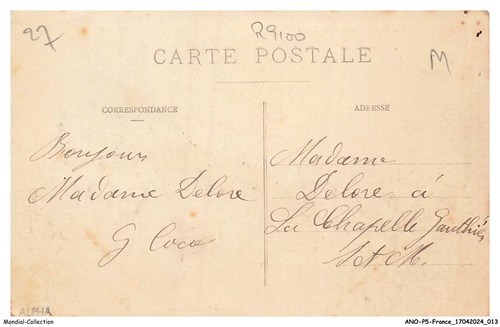 27
R9100
M
CARTE POSTALE
CORRESPONDANCE
ADRESSE
Bonjour
Madame Delore
G Coco
Madame
Delore à
La Chapelle Gauthier
S et M.
ALPHA
Mondial-Collection
ANO-P5-France_17042024_013